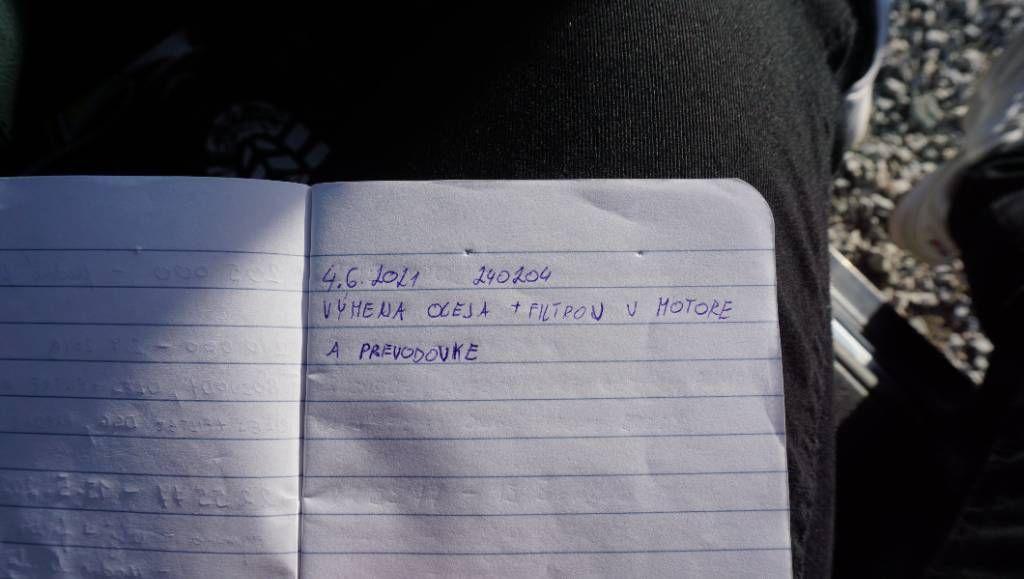 4.6.2021 240204
VÝMENA OLEJA + FILTROV V MOTORE
A PREVODOVKE